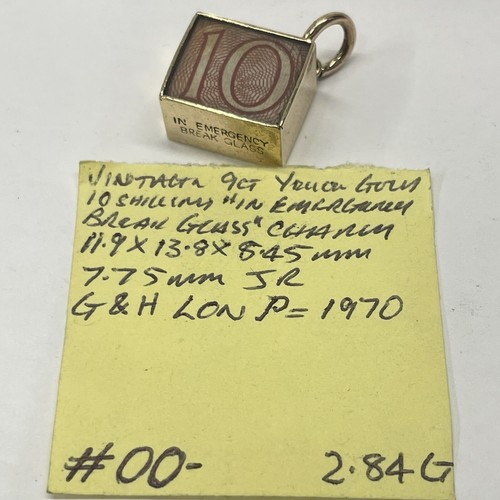 10
IN EMERGENCY
BREAK GLASS
VINTAGE 9CT YELLOW GOLD
10 SHILLING "IN EMERGENCY
BREAK GLASS" CHARM
11.9 X 13.8 X 8.45mm
7.75mm JR
G&H LON P = 1970
#00-
2.84G